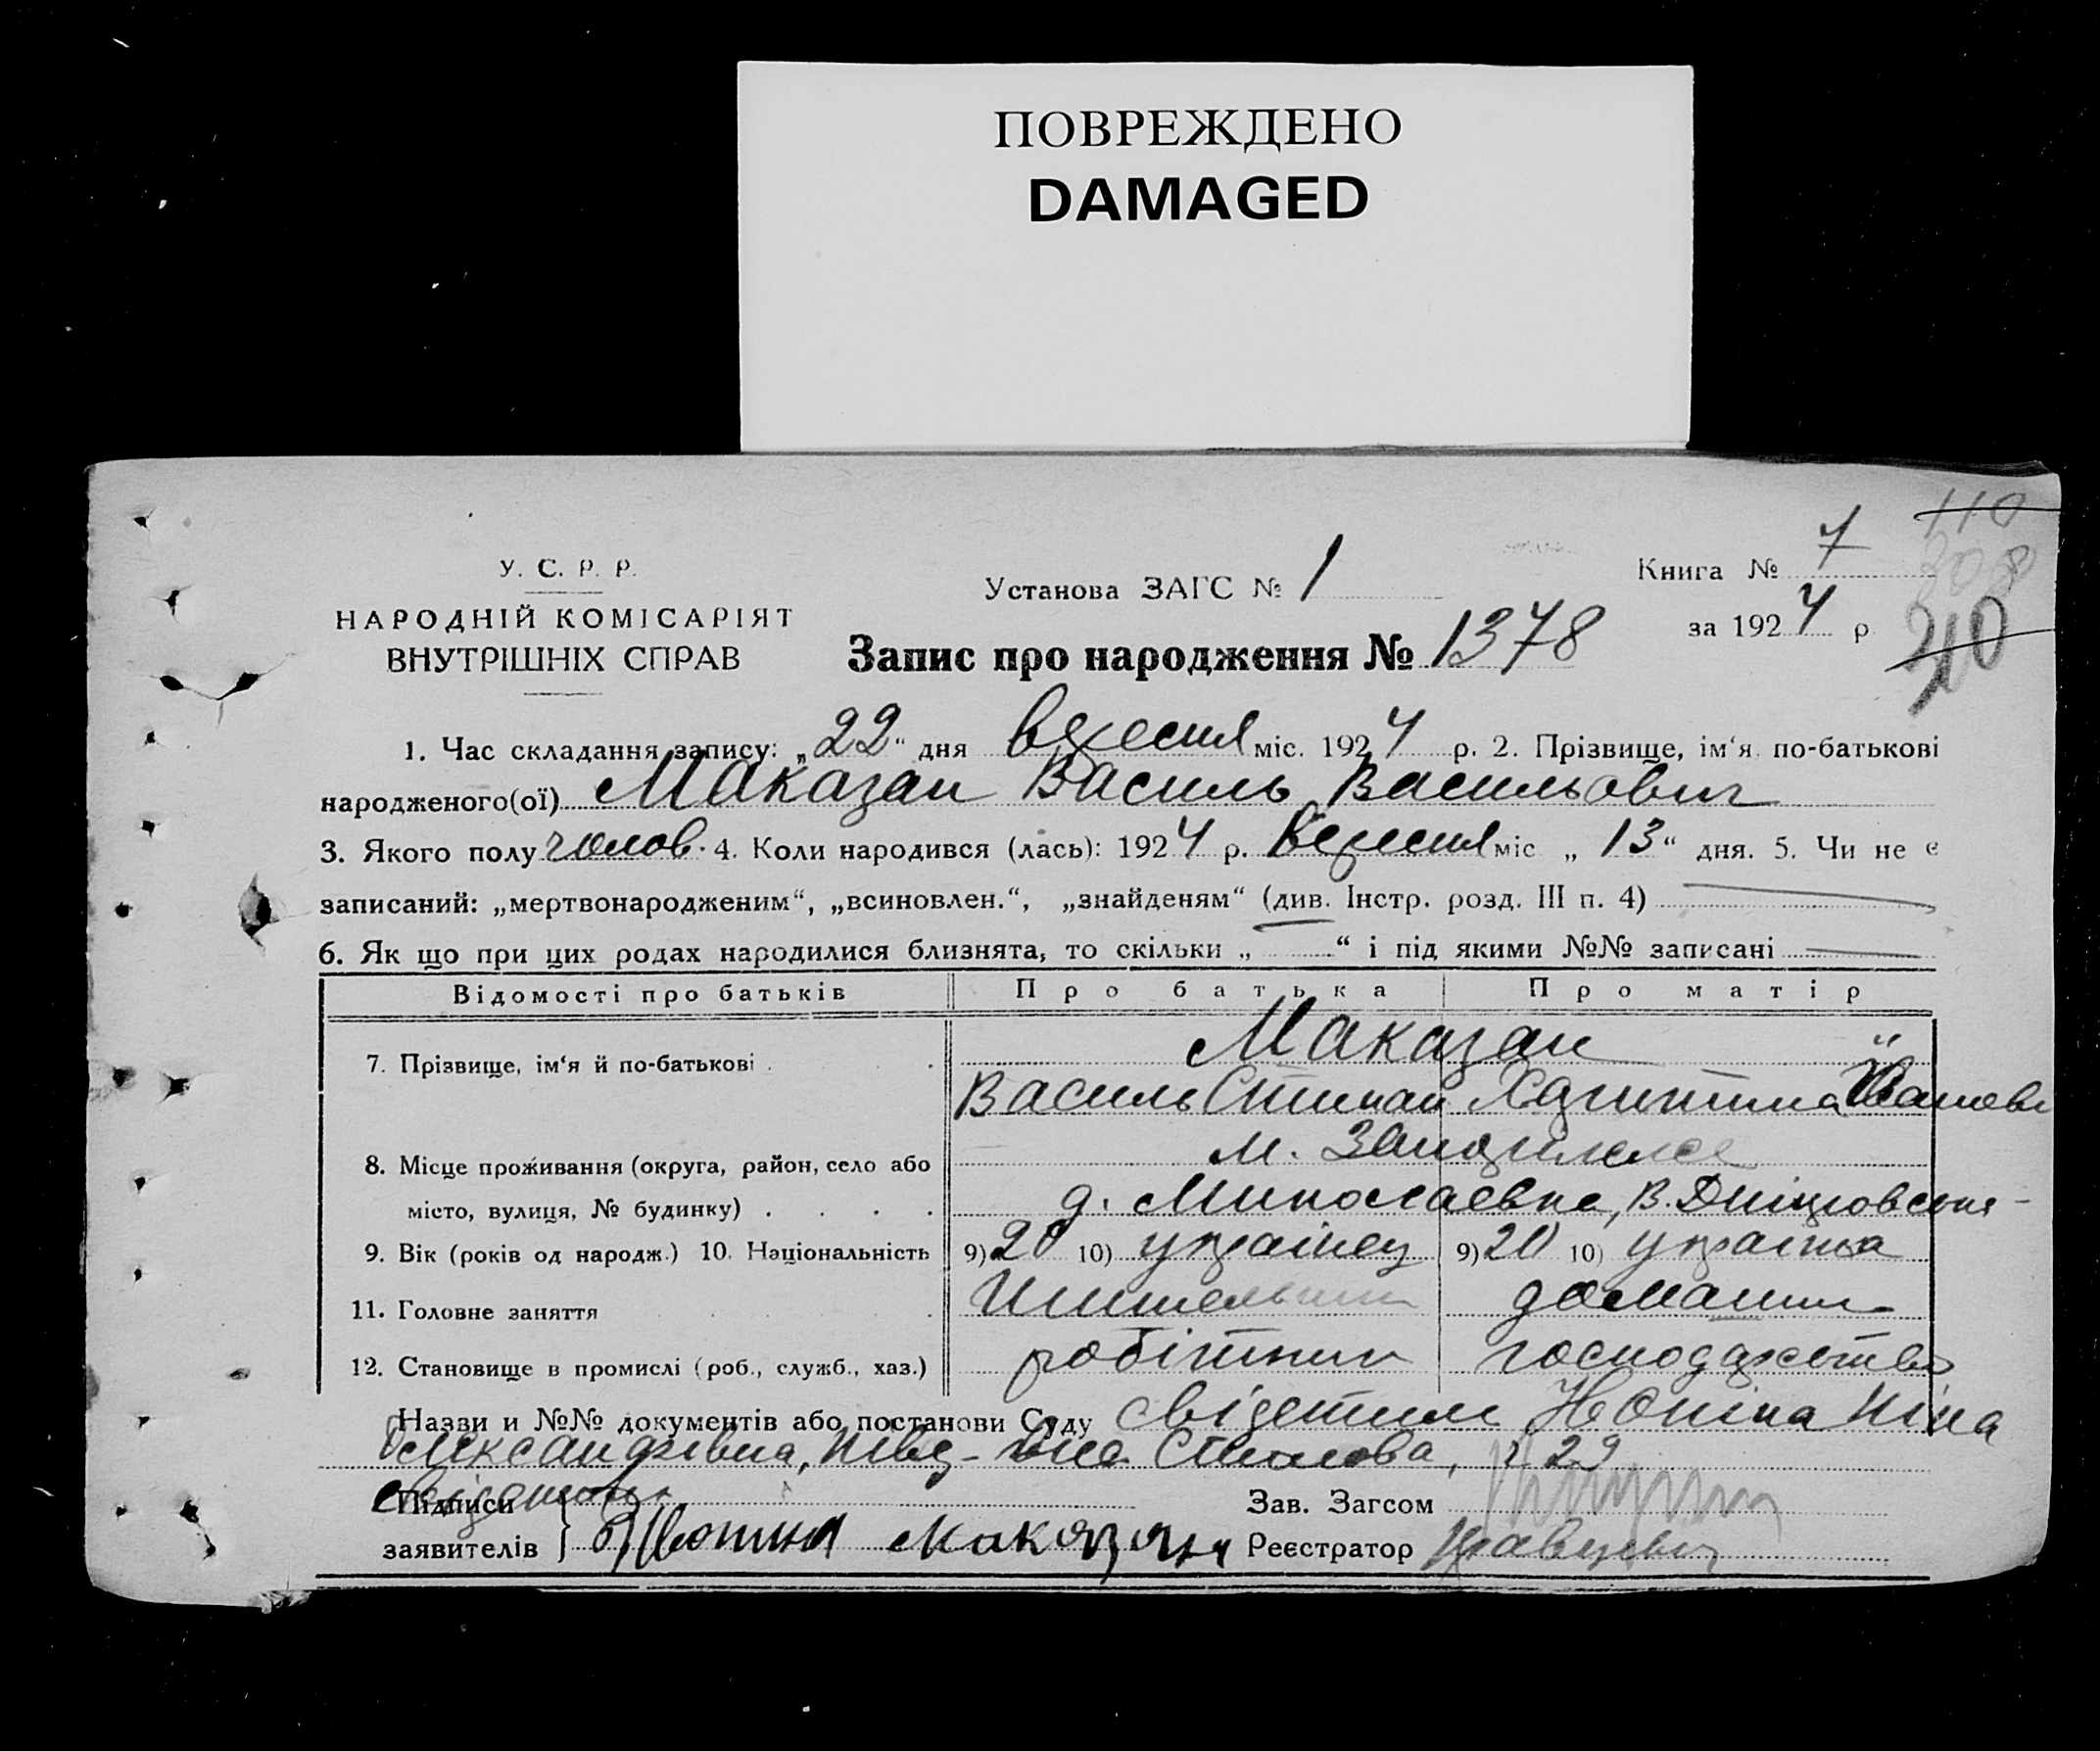 ПОВРЕЖДЕНО
DAMAGED
110
308
210
У. С. Р. Р.
НАРОДНІЙ КОМІСАРІЯТ
ВНУТРІШНІХ СПРАВ
Установа ЗАГС № 1
Книга № 7
за 1924 р
Запис про народження № 1378
1. Час складання запису: „22“ дня вересня міс. 1924 р. 2. Прізвище, ім‘я по-батькові
народженого(ої) Маказан Василь Васильович
3. Якого полу чолов. 4. Коли народився (лась): 1924 р. Вересня міс „13“ дня. 5. Чи не є
записаний: „мертвонародженим“, „всиновлен.“, „знайденям“ (див. Інстр. розд. III п. 4)
6. Як що при цих родах народилися близнята, то скільки „ “ і під якими №№ записані
Відомості про батьків Про батька Про матір
7. Прізвище, ім‘я й по-батькові Маказан
Василь Степан
8. Місце проживання (округа, район, село або м.
місто, вулиця, № будинку) д. Миколаевка, В.
9. Вік (років од народж.) 10. Національність 9) 20 10) украінец 9) 20 10) украінка
11. Головне заняття домашн
12. Становище в промислі (роб., служб., хаз.) робітник господарство
Назви и №№ документів або постанови Суду свідетили Ніна
Александрівна, 29
Підписи
заявителів Маказан
Зав. Загсом
Реєстратор